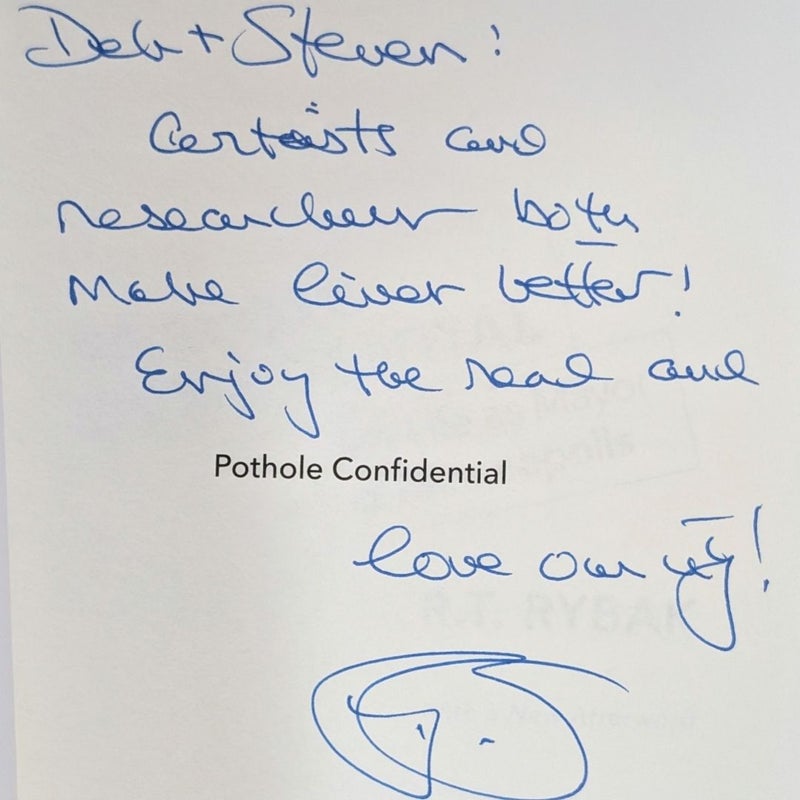 Deb + Steven!
Artists and
researchers both
make lives better!
Enjoy the read and
Pothole Confidential
love our city!
R.T. RYBAK